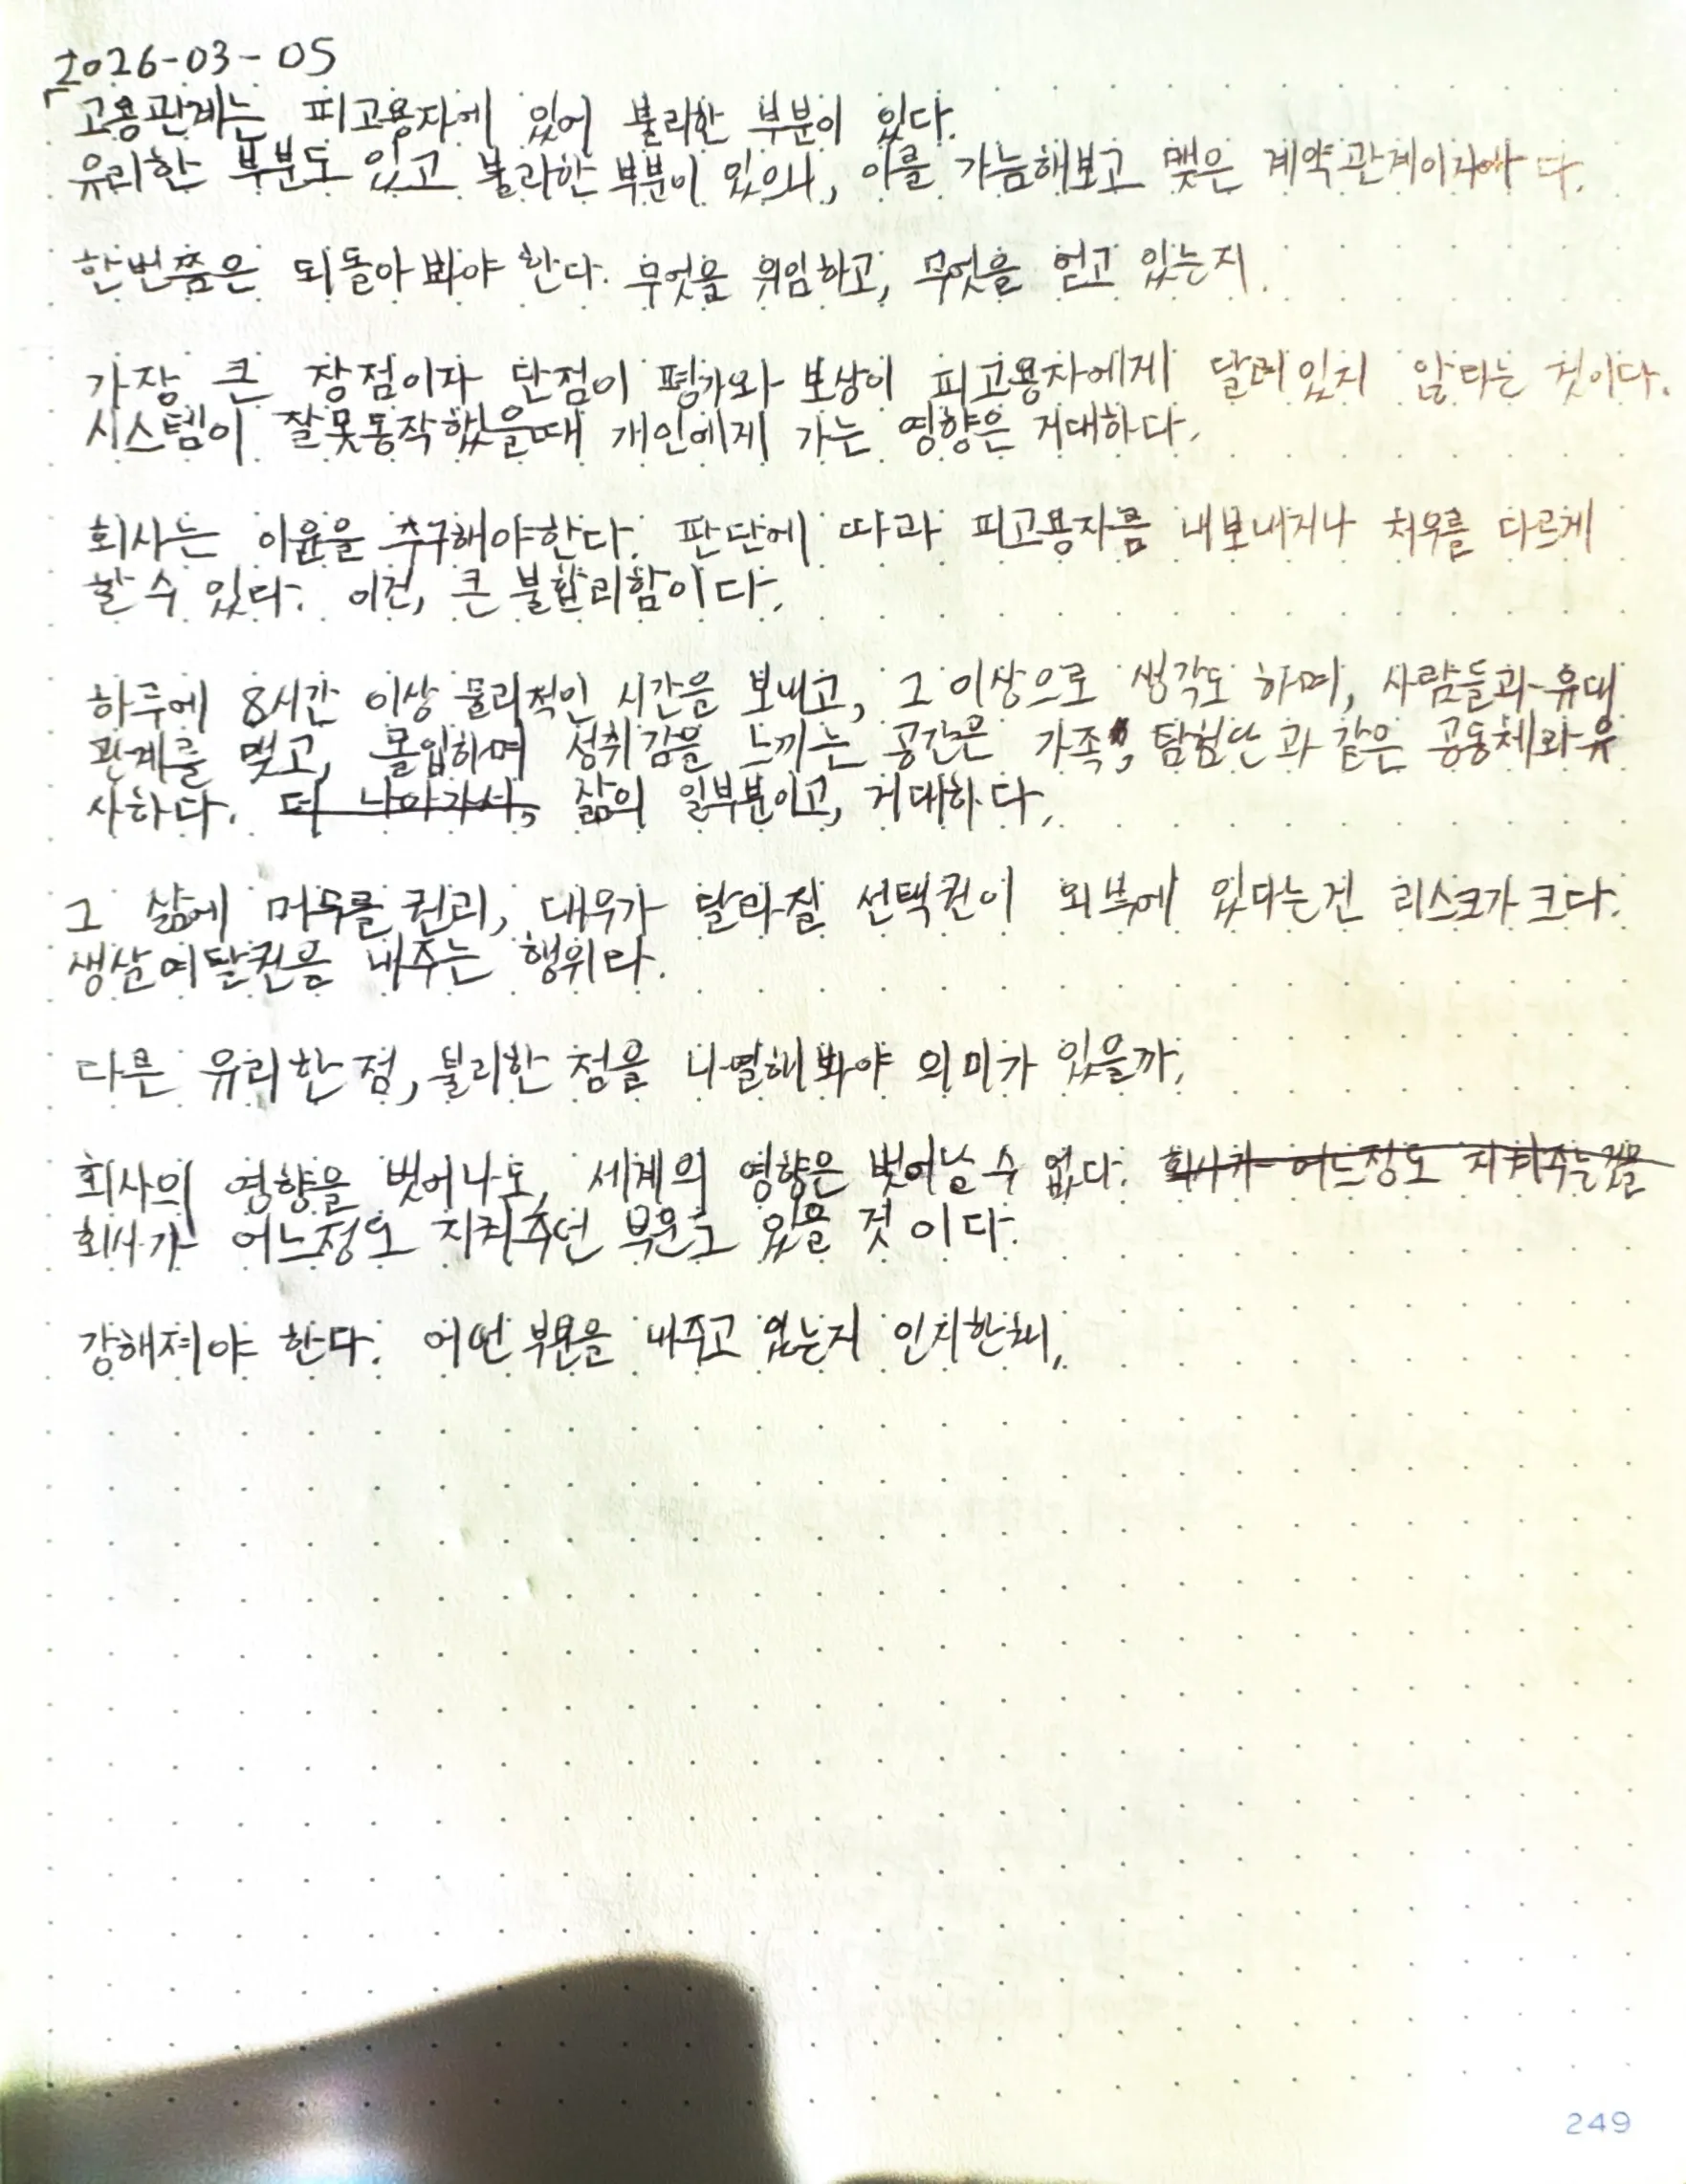 2026-03-05
고용관계는 피고용자에 있어 불리한 부분이 있다.
유리한 부분도 있고 불리한 부분이 있으나, 이를 가늠해보고 맺은 계약관계이자 다.
한번쯤은 되돌아봐야 한다. 무엇을 위임하고, 무엇을 얻고 있는지.
가장 큰 장점이자 단점이 평가와 보상이 피고용자에게 달려있지 않다는 것이다.
시스템이 잘못동작했을때 개인에게 가는 영향은 거대하다.
회사는 이윤을 추구해야한다. 판단에 따라 피고용자를 내보내거나 처우를 다르게
할 수 있다. 이건, 큰 불합리함이다.
하루에 8시간 이상 물리적인 시간을 보내고, 그 이상으로 생각도 하며, 사람들과 유대
관계를 맺고, 몰입하며 성취감을 느끼는 공간은 가족, 탐험단과 같은 공동체와 유
사하다. 더 나아가서, 삶의 일부분이고, 거대하다.
그 삶에 머무를 권리, 대우가 달라질 선택권이 외부에 있다는건 리스크가 크다.
생살여탈권을 내주는 행위라.
다른 유리한 점, 불리한 점을 나열해봐야 의미가 있을까.
회사의 영향을 벗어나도, 세계의 영향은 벗어날 수 없다. 회사가 어느정도 지켜주는 것을
회사가 어느정도 지켜주던 부분도 있을 것이다.
강해져야 한다. 어떤 부분을 내주고 있는지 인지한채.
249